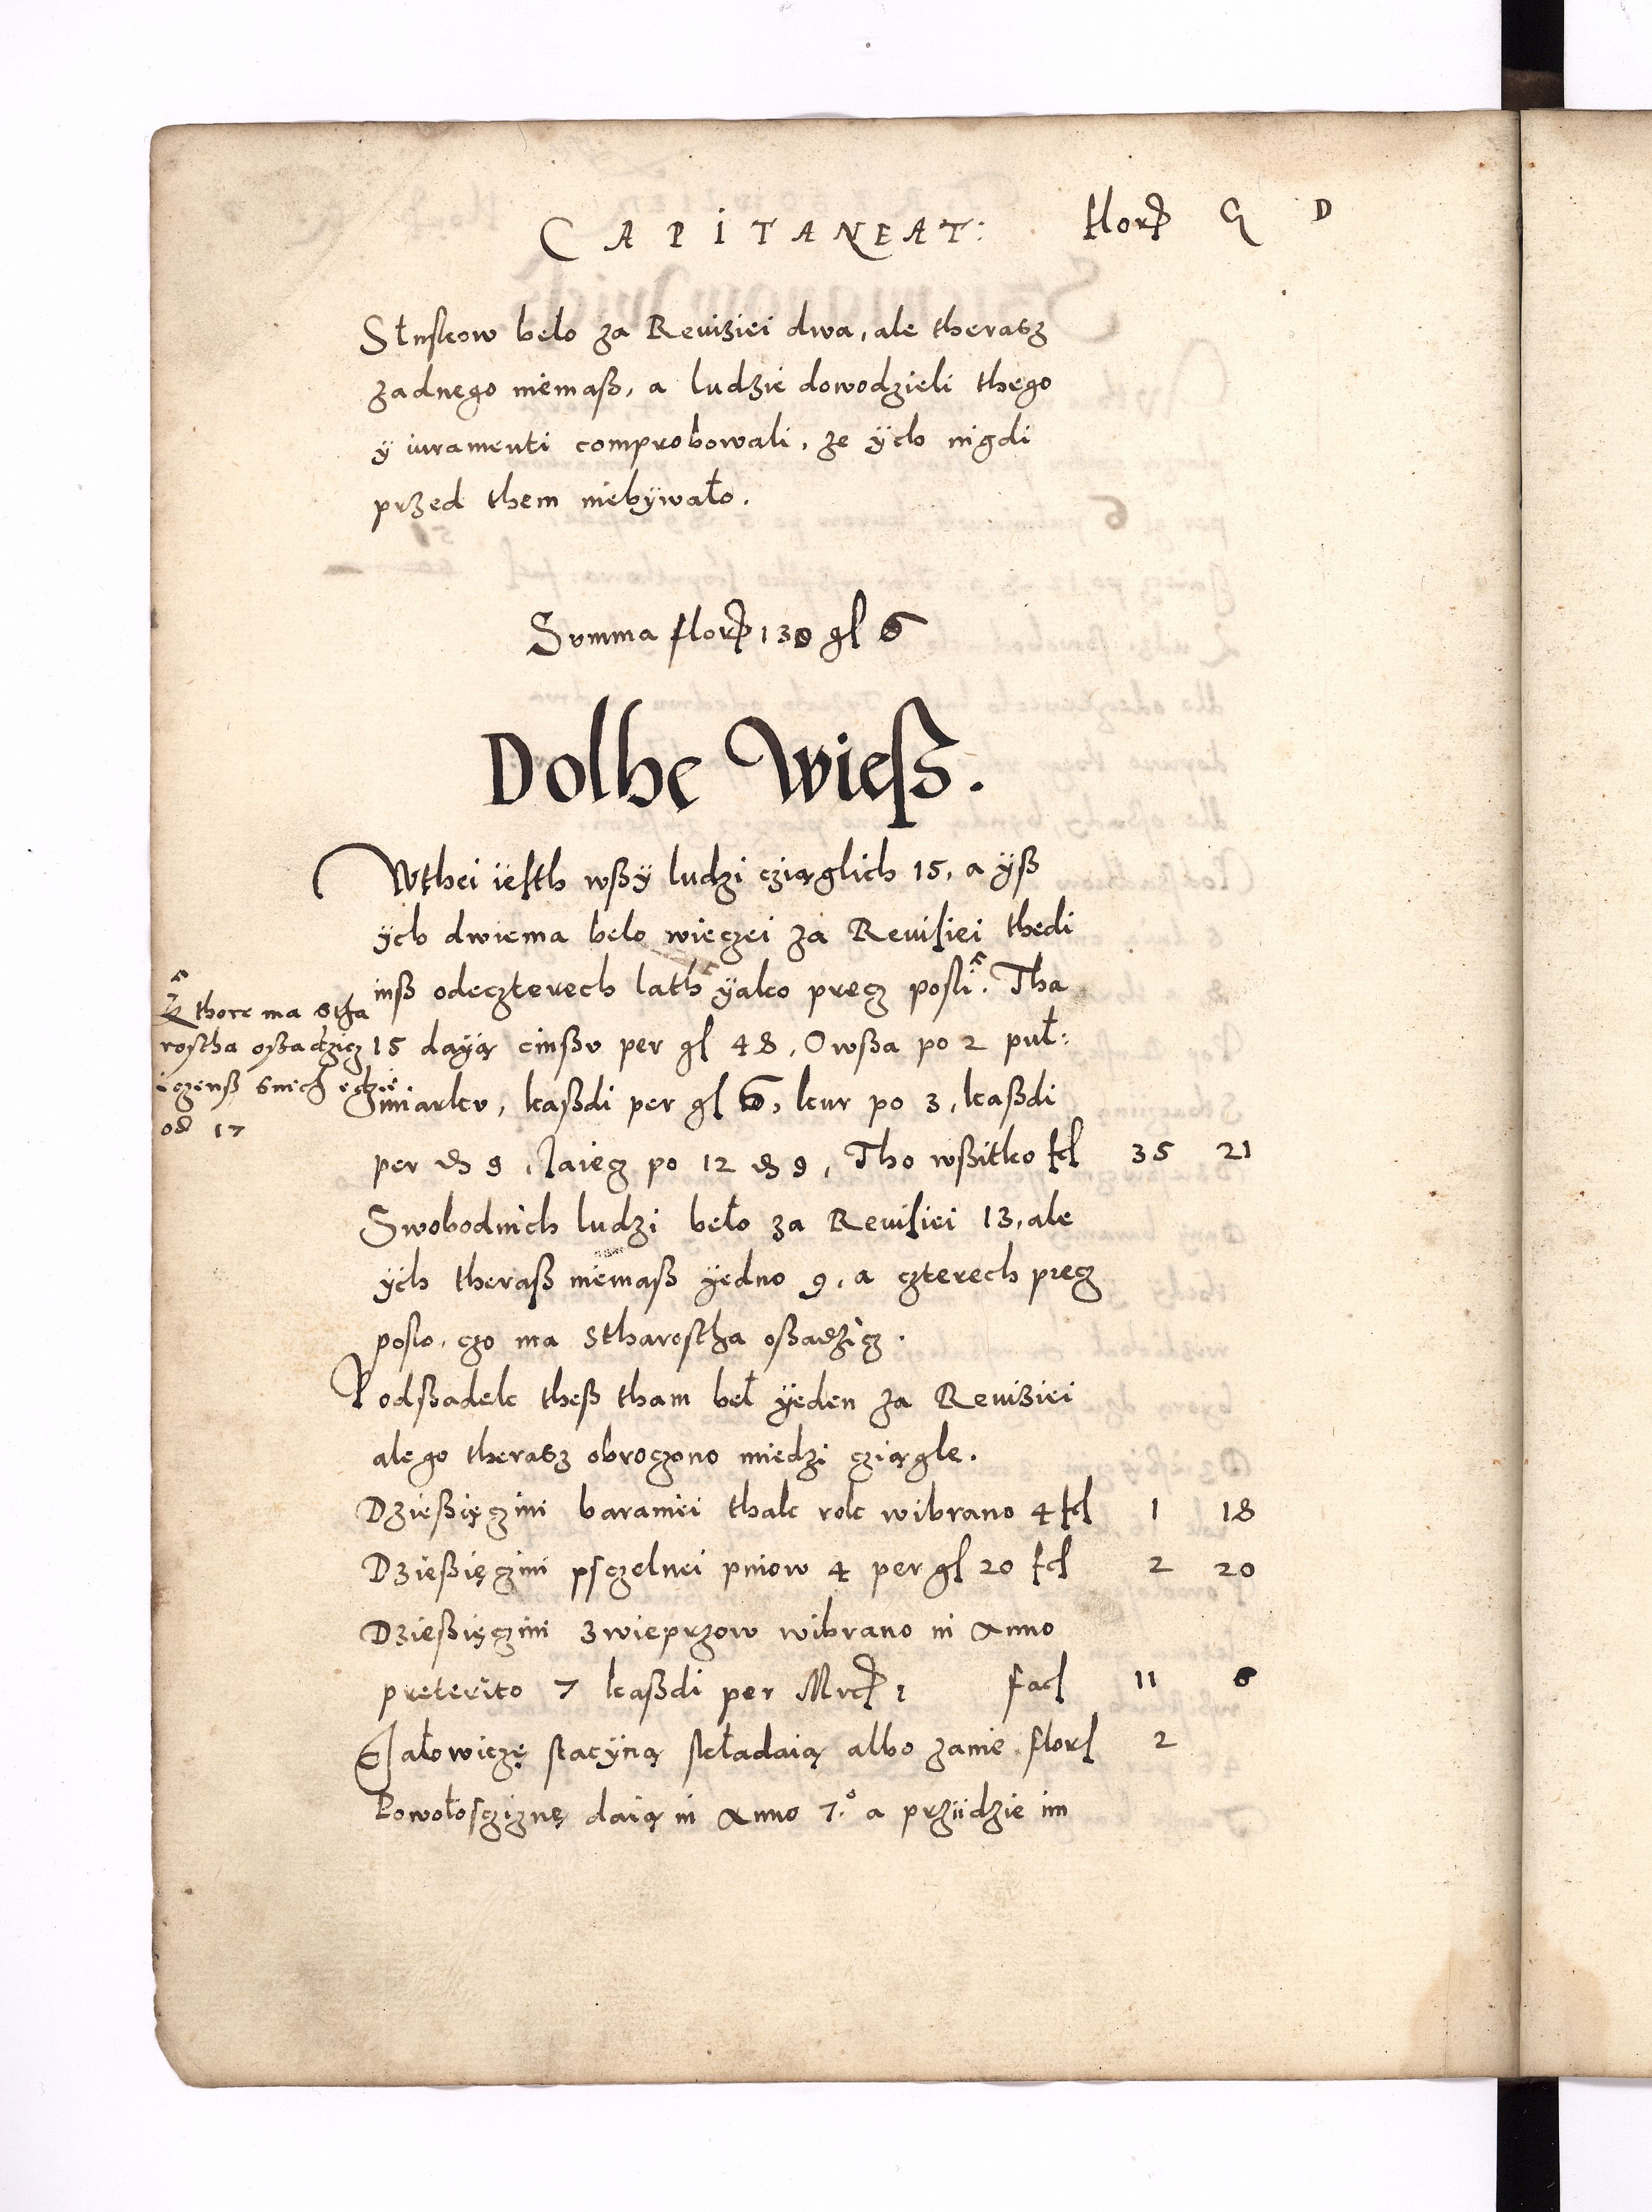 CAPITANEAT: flor G D
Słuskow belo za Reuiziei dwa, ale therasz
zadnego niemaß, a ludzie dowodzieli thego
ÿ iuramenti comprobowali, ze ÿch nigdi
przed them niebÿwało.
Summa flor 138 gl 6
Dolhe Wieß.
Wthei iesth wßÿ ludzi cziąglich 15, a ÿß
ÿch dwiema belo wieczei za Reuisiei thedi
inß odeczterech lath ÿako precz posli. Tha
15 daÿą cinßu per gl 48, Owßa po 2 puł:
miarku, kaßdi per gl 6, kur po 3, kaßdi
per 9, Jaiecz po 12 9, Tho wßitko fcl 35 21
ktore ma Stha
rostha oßadzicz
i czenß snich
od 17
Swobodnich ludzi beło za Reuisiei 13, ale
ÿch theraß niemaß ÿedno 9, a czterech precz
poslo, czo ma Stharostha oßadzicz.
Podßadek theß tham beł ÿeden za Reuiziei
alego therasz obroczono miedzi cziągle.
Dzießięczini baraniei thak rok wibrano 4 fcl 1 18
Dzießięczini psczelnei pniow 4 per gl 20 fcl 2 20
Dzießięczini zwieprzow wibrano in Anno
preterito 7 kaßdi per Mrc 1 facl 11 6
Jałowiczę stacÿną składaią albo zanie florl 2
Powołoscziznę daią in Anno 7.º a przÿdzie im